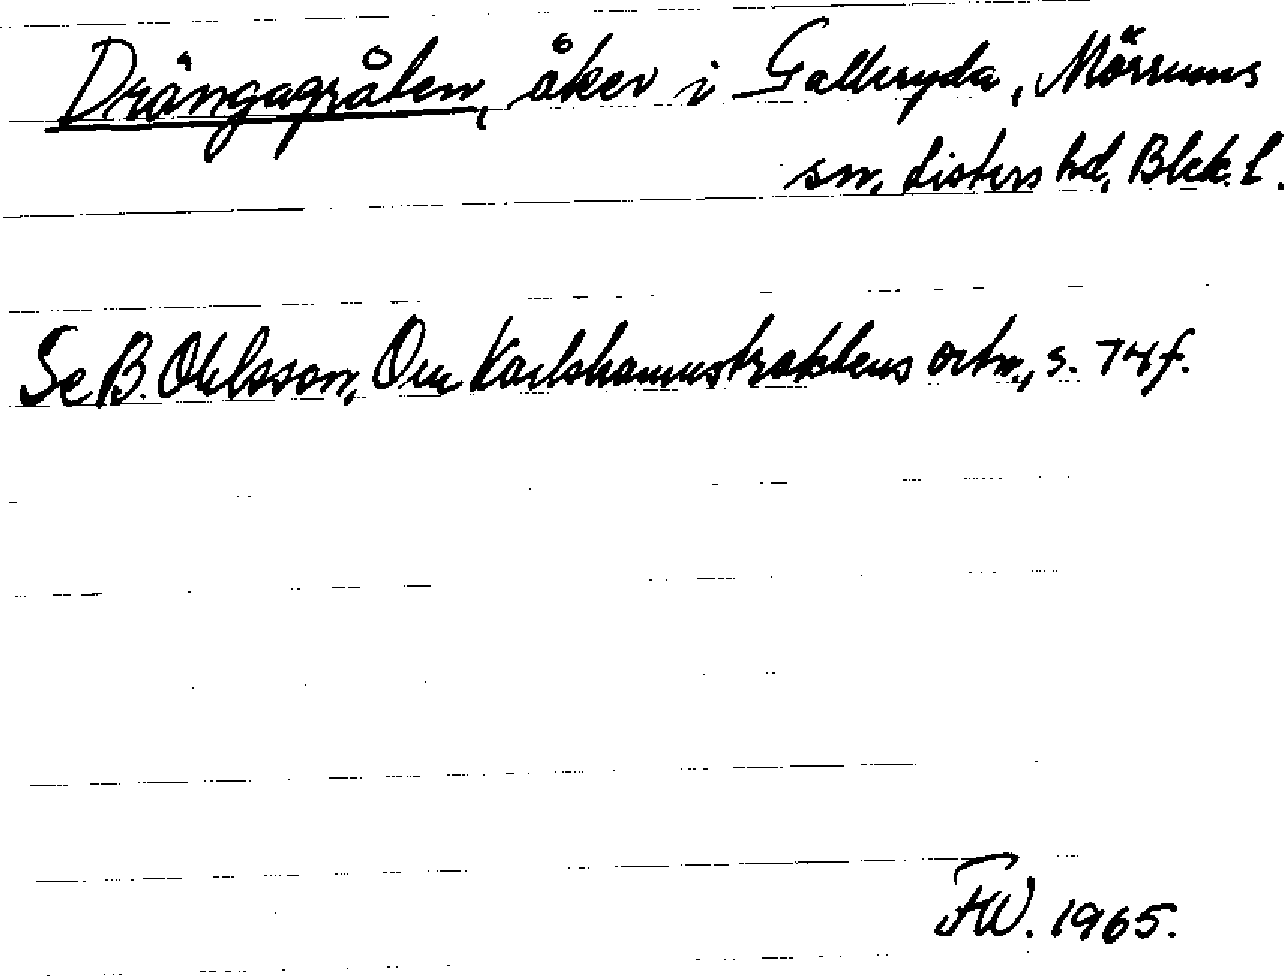 Drängagråten, åker i Galleryda, Mörrums
sn, Listers hd, Blek. l.
Se B. Ohlsson, Om Karlshamnstraktens ortn., s. 74 f.
FW. 1965.